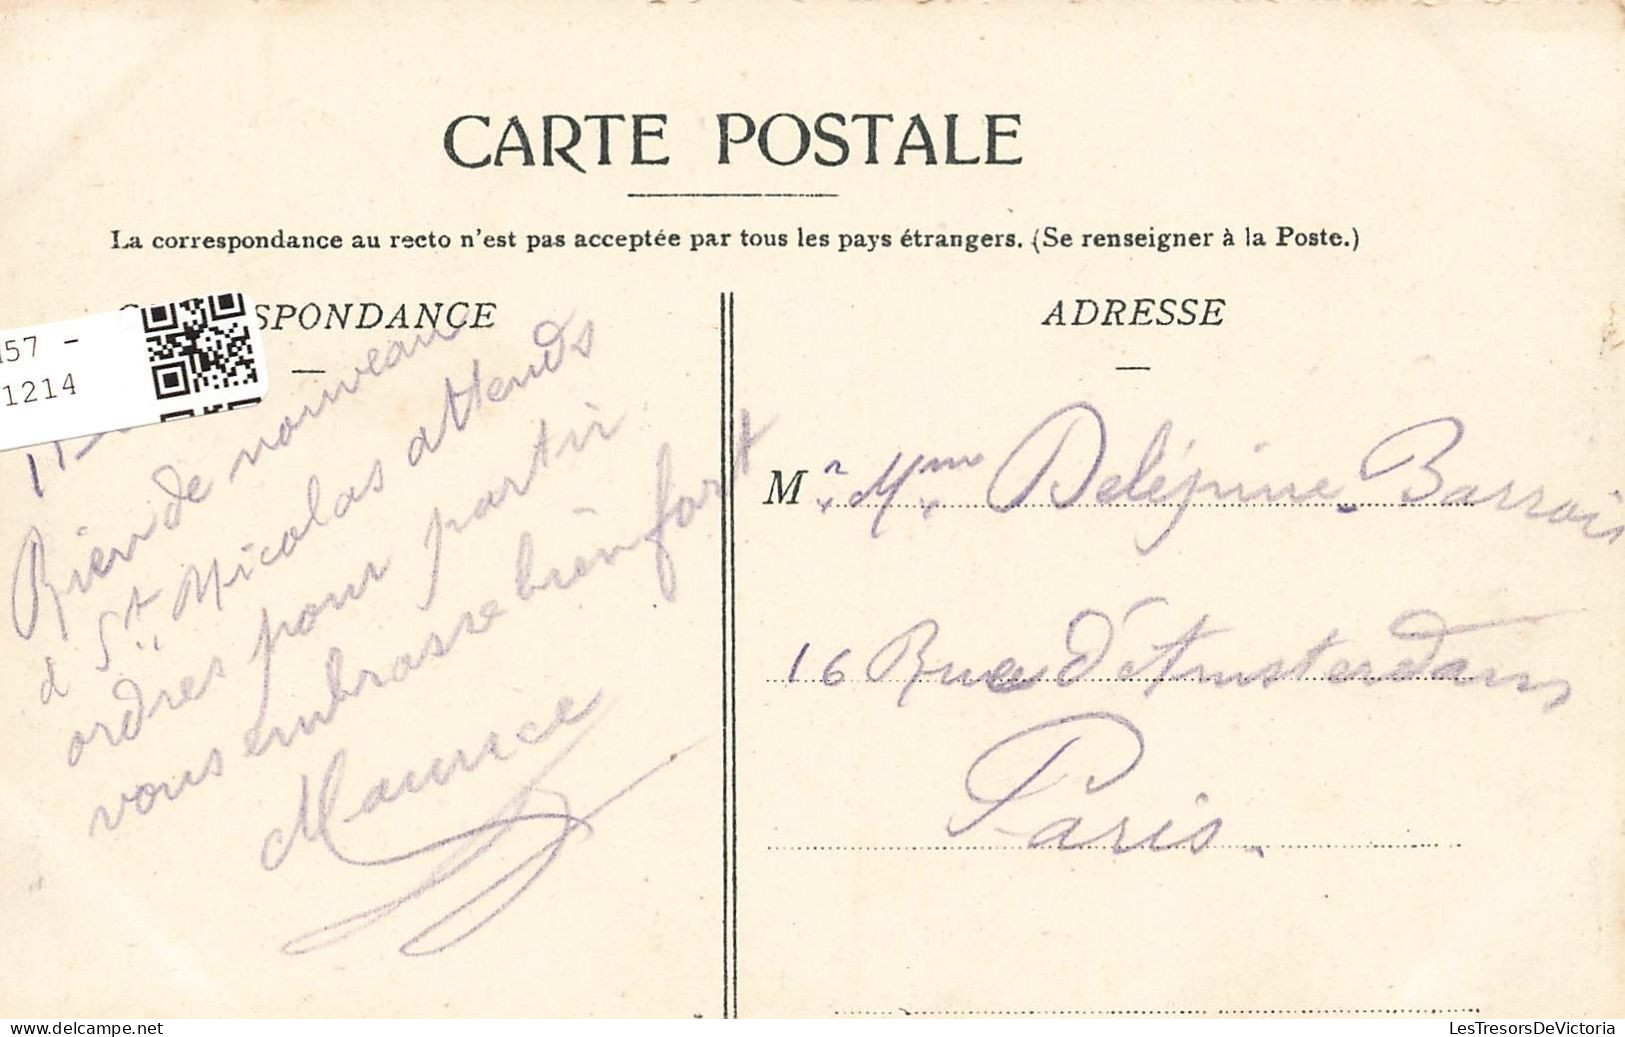 CARTE POSTALE
La correspondance au recto n'est pas acceptée par tous les pays étrangers. (Se renseigner à la Poste.)
SPONDANCE
57 -
1214
Rien de nouveau
à St Nicolas attends
ordres pour partir
vous embrasse bien fort
Maurice
ADRESSE
Mr. Mme Delépine-Barrois
16 Rue d'Amsterdam
Paris.
LesTresorsDeVictoria